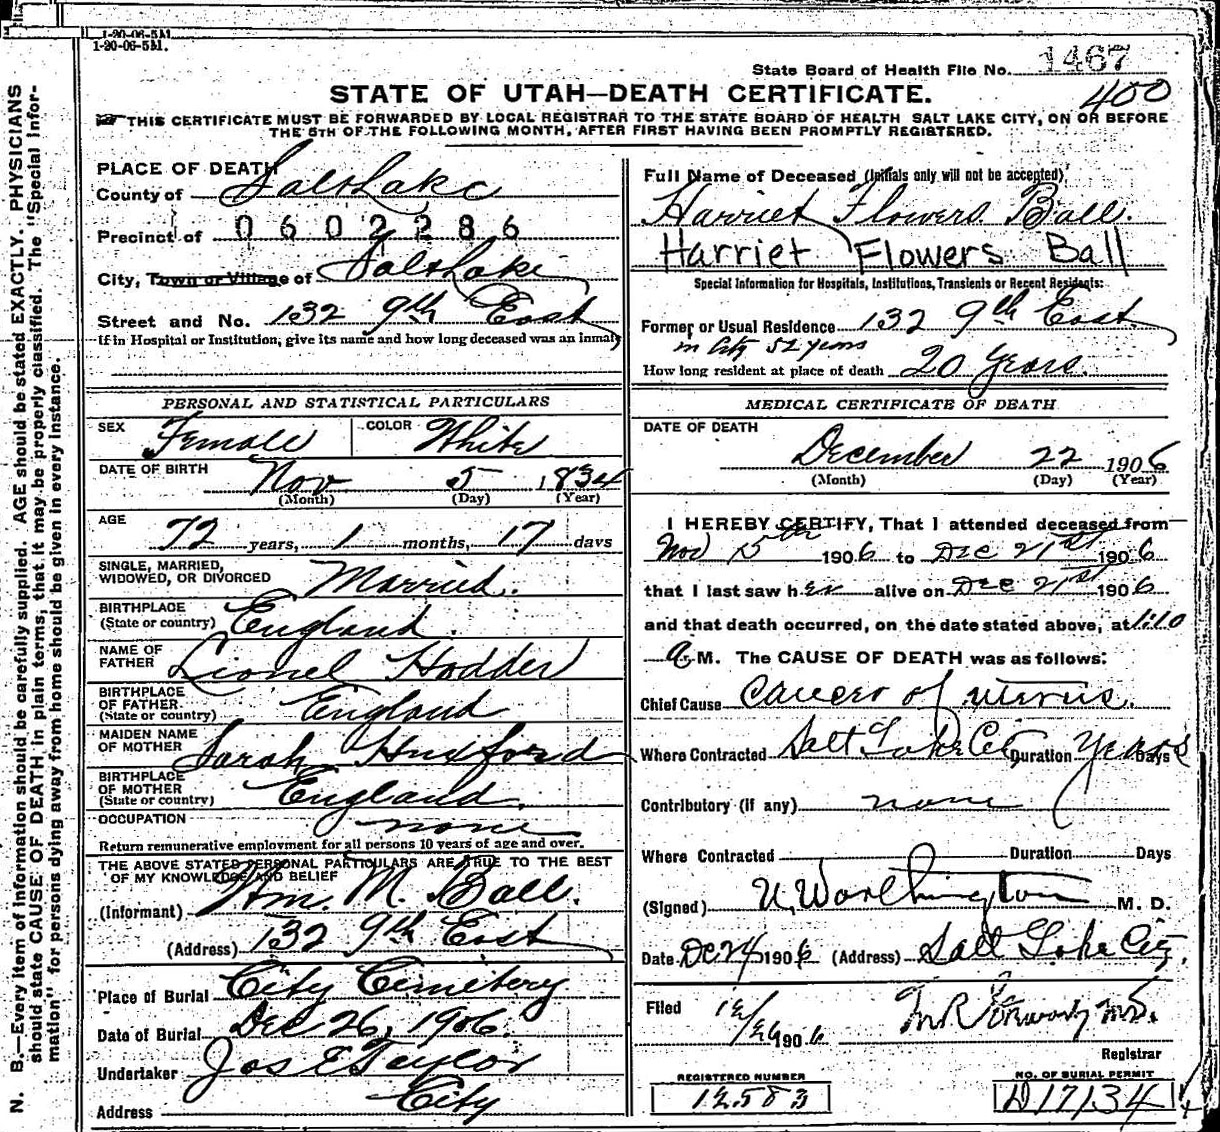 1-20-06-5M.
1-20-06-5M.
State Board of Health File No. 1467
400
STATE OF UTAH—DEATH CERTIFICATE.
THIS CERTIFICATE MUST BE FORWARDED BY LOCAL REGISTRAR TO THE STATE BOARD OF HEALTH SALT LAKE CITY, ON OR BEFORE
THE 5TH OF THE FOLLOWING MONTH, AFTER FIRST HAVING BEEN PROMPTLY REGISTERED.
N. B.—Every item of information should be carefully supplied. AGE should be stated EXACTLY. PHYSICIANS
should state CAUSE OF DEATH in plain terms, that it may be properly classified. The "Special Infor-
mation" for persons dying away from home should be given in every instance.
PLACE OF DEATH
County of Salt Lake
Precinct of 0602286
City, Town or Village of Salt Lake
Street and No. 132 9th East
If in Hospital or Institution, give its name and how long deceased was an inmate
PERSONAL AND STATISTICAL PARTICULARS
SEX Female COLOR White
DATE OF BIRTH Nov 5 1834
(Month) (Day) (Year)
AGE
72 years, 1 months, 17 days
SINGLE, MARRIED,
WIDOWED, OR DIVORCED Married.
BIRTHPLACE
(State or country) England.
NAME OF
FATHER Lionel Hodder
BIRTHPLACE
OF FATHER
(State or country) England
MAIDEN NAME
OF MOTHER Sarah Huxford
BIRTHPLACE
OF MOTHER
(State or country) England.
OCCUPATION none
Return remunerative employment for all persons 10 years of age and over.
THE ABOVE STATED PERSONAL PARTICULARS ARE TRUE TO THE BEST
OF MY KNOWLEDGE AND BELIEF
(Informant) Wm. M. Ball.
(Address) 132 9th East
Place of Burial City Cemetery
Date of Burial Dec 26, 1906.
Undertaker Jos E Taylor
Address City
Full Name of Deceased (Initials only will not be accepted)
Harriet Flowers Ball.
Harriet Flowers Ball
Special Information for Hospitals, Institutions, Transients or Recent Residents:
Former or Usual Residence 132 9th East.
in City 52 years
How long resident at place of death 20 Years.
MEDICAL CERTIFICATE OF DEATH
DATE OF DEATH
December 22 1906
(Month) (Day) (Year)
I HEREBY CERTIFY, That I attended deceased from
Nov 15th 1906 to Dec 21st 1906
that I last saw her alive on Dec 21st 1906
and that death occurred, on the date stated above, at 1:10
a M. The CAUSE OF DEATH was as follows:
Chief Cause Cancer of uterus.
Where Contracted Salt Lake City Duration Years Days
Contributory (if any) none
Where Contracted Duration Days
(Signed) U. Worthington M. D.
Date Dec 24 1906 (Address) Salt Lake City.
Filed 12/26 1906
Registrar
REGISTERED NUMBER
12583
NO. OF BURIAL PERMIT
D17134